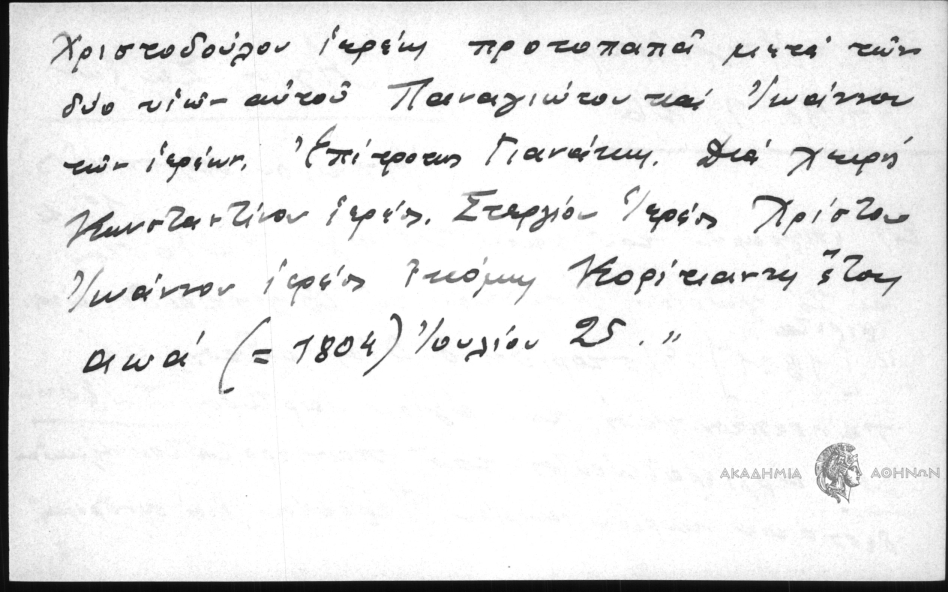 Χριστοδούλου ἱερέως προτοπαπᾶ μετά τῶν
δύο υἱῶν αὐτοῦ Παναγιώτου καί Ἰωάννου
τῶν ἱερέων. Ἐπίτροπος Γιανάκης. Διά χειρός
Κωνσταντίνου ἱερέως. Στεργίου Ἱερέως Χρίστου
Ἰωάννου ἱερέως Κορίτιανης ἔτους
αωά (= 1804) Ἰουλίου 25."
ΑΚΑΔΗΜΙΑ ΑΘΗΝΩΝ